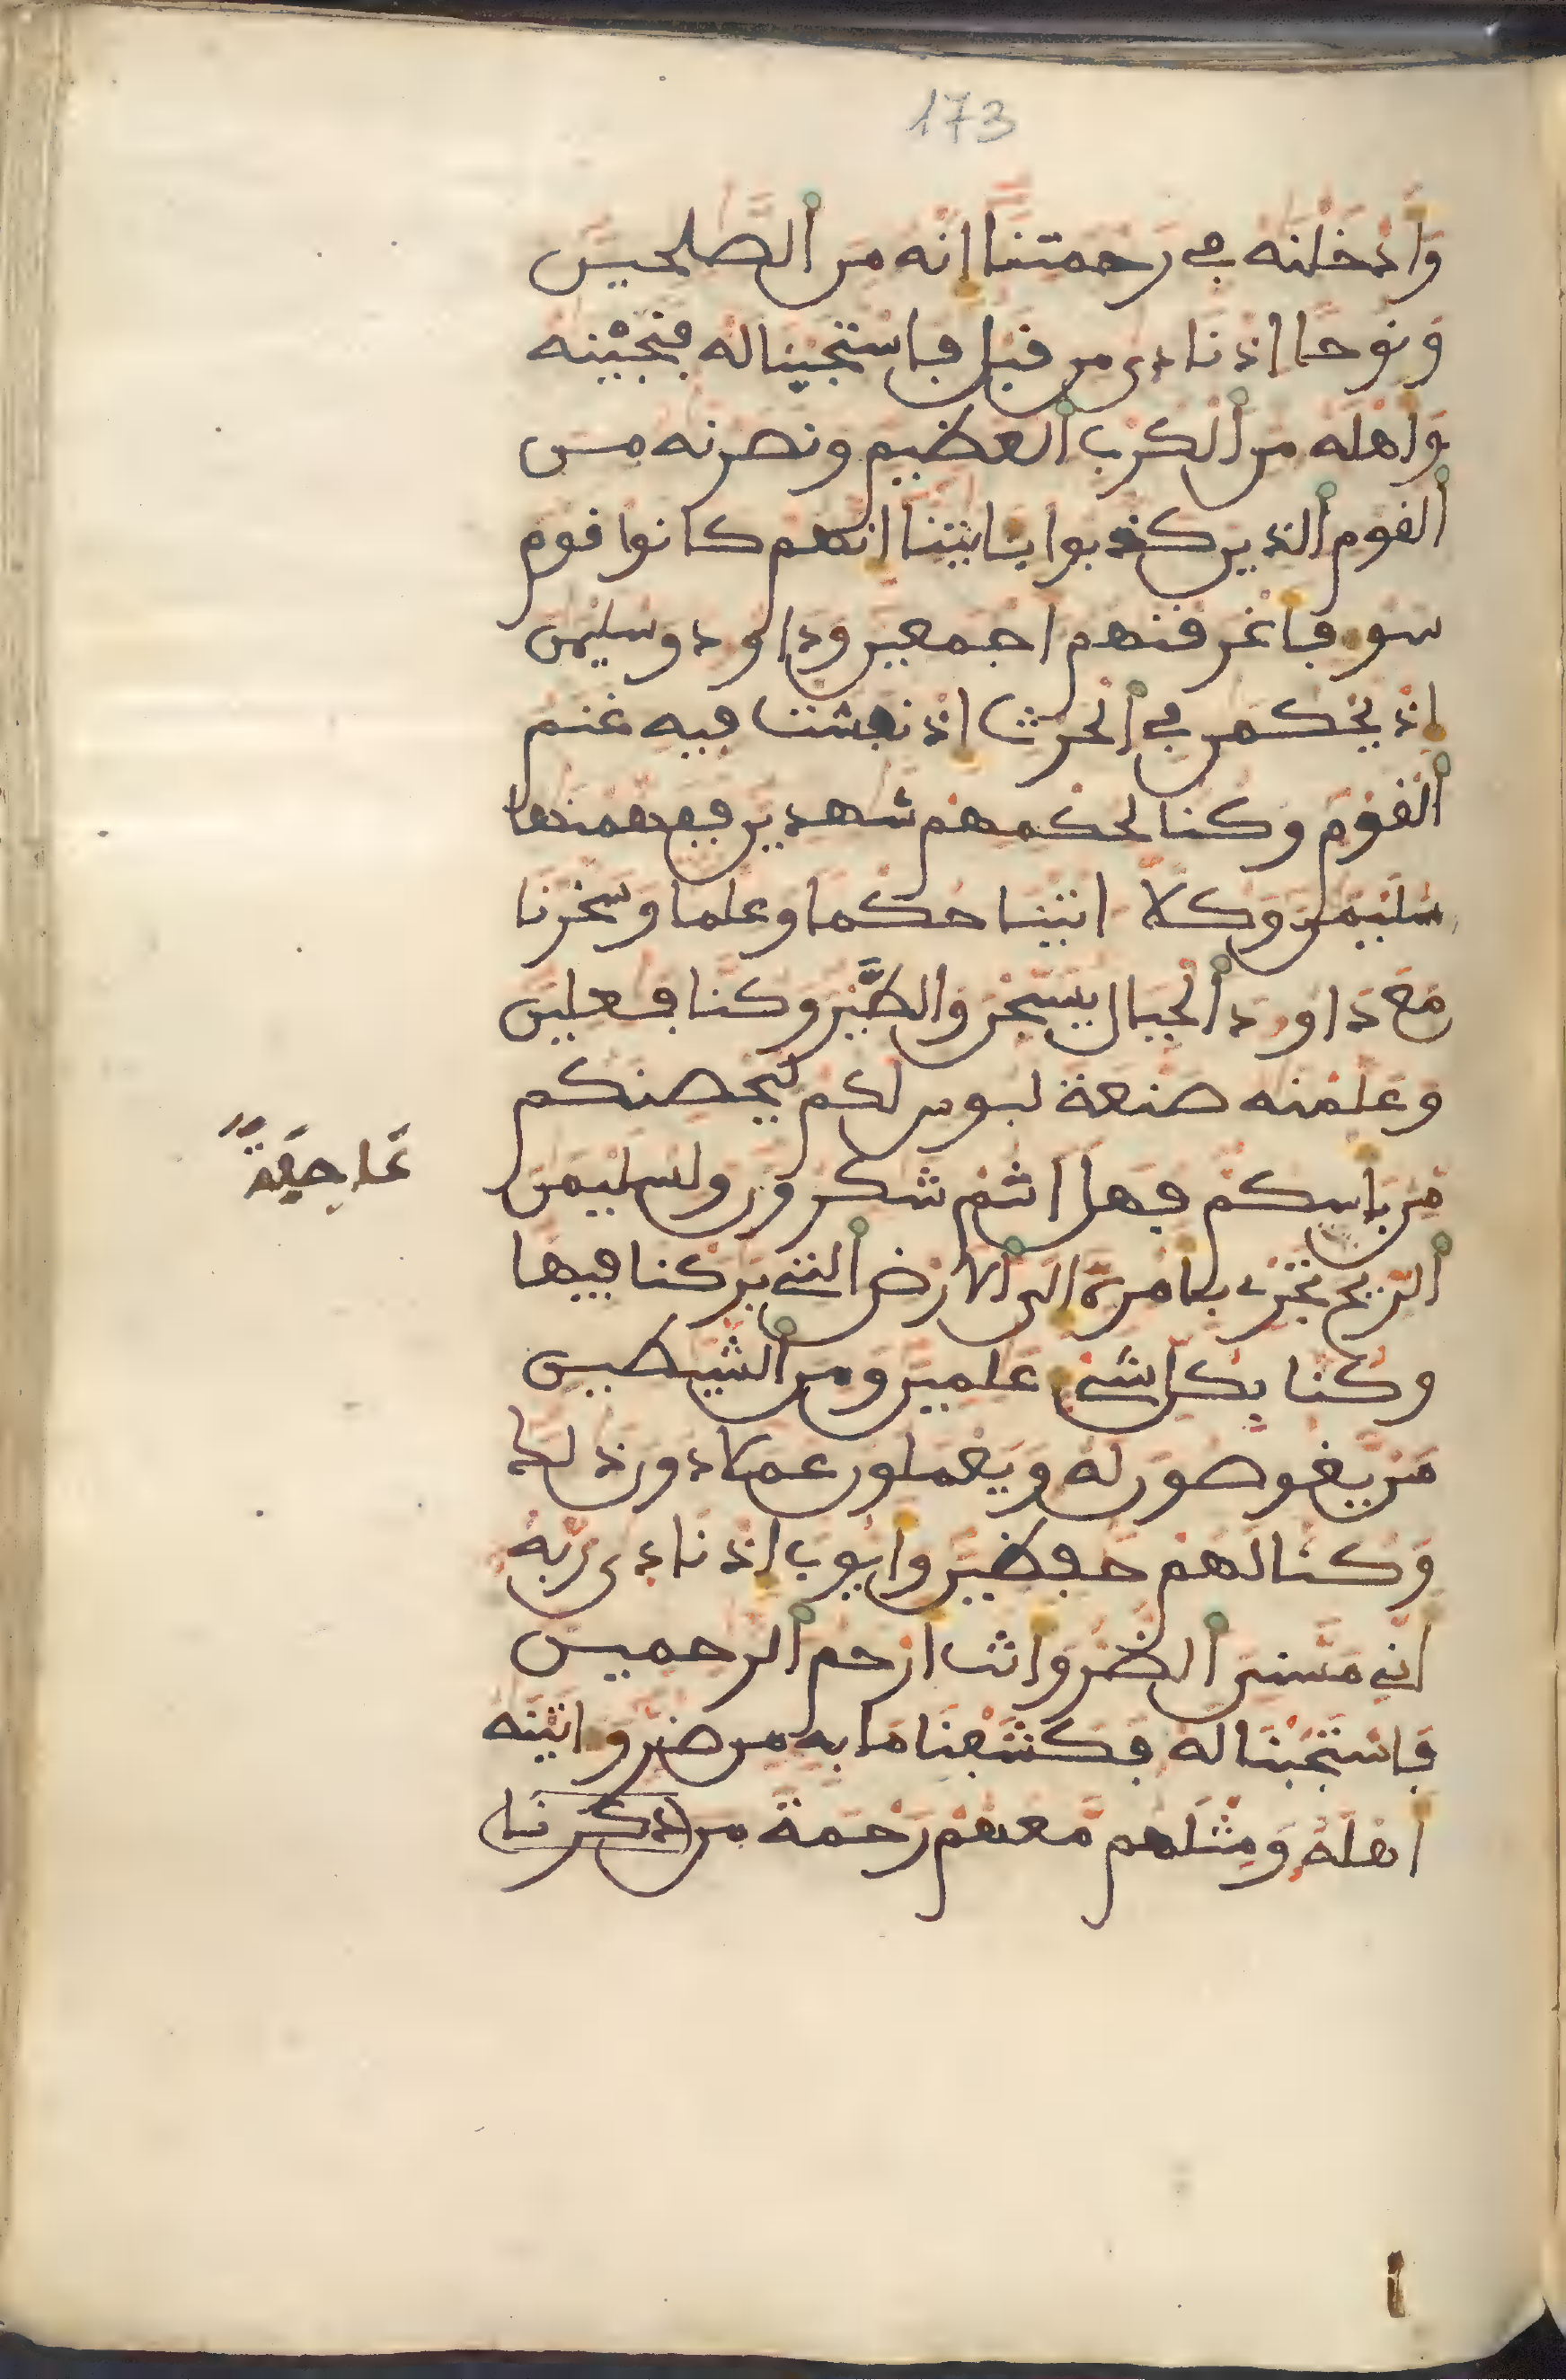 173
وأدخلنه في رحمتنا إنه من ٱلصلحين
ونوحا إذ نادى من قبل فاستجبنا له فنجينه
وأهله من ٱلكرب ٱلعظيم ونصرنه من
ٱلقوم ٱلذين كذبوا بـايتنا إنهم كانوا قوم
سوء فأغرقنهم أجمعين وداود وسليمن
إذ يحكمن في ٱلحرث إذ نفشت فيه غنم
ٱلقوم وكنا لحكمهم شهدين ففهمنها
سليمن وكلا اتينا حكما وعلما وسخرنا
مع داود ٱلجبال يسبحن والطير وكنا فعلين
وعلمنه صنعة لبوس لكم ليحصنكم
من بأسكم فهل أنتم شكرون ولسليمن
عاصفة
ٱلريح تجري بأمره إلى ٱلأرض ٱلتي بركنا فيها
وكنا بكل شيء علمين ومن ٱلشيطين
من يغوصون له ويعملون عملا دون ذلك
وكنا لهم حفظين وأيوب إذ نادى ربه
أني مسني ٱلضر وأنت أرحم ٱلرحمين
فاستجبنا له فكشفنا ما به من ضر واتينه
أهله ومثلهم معهم رحمة من